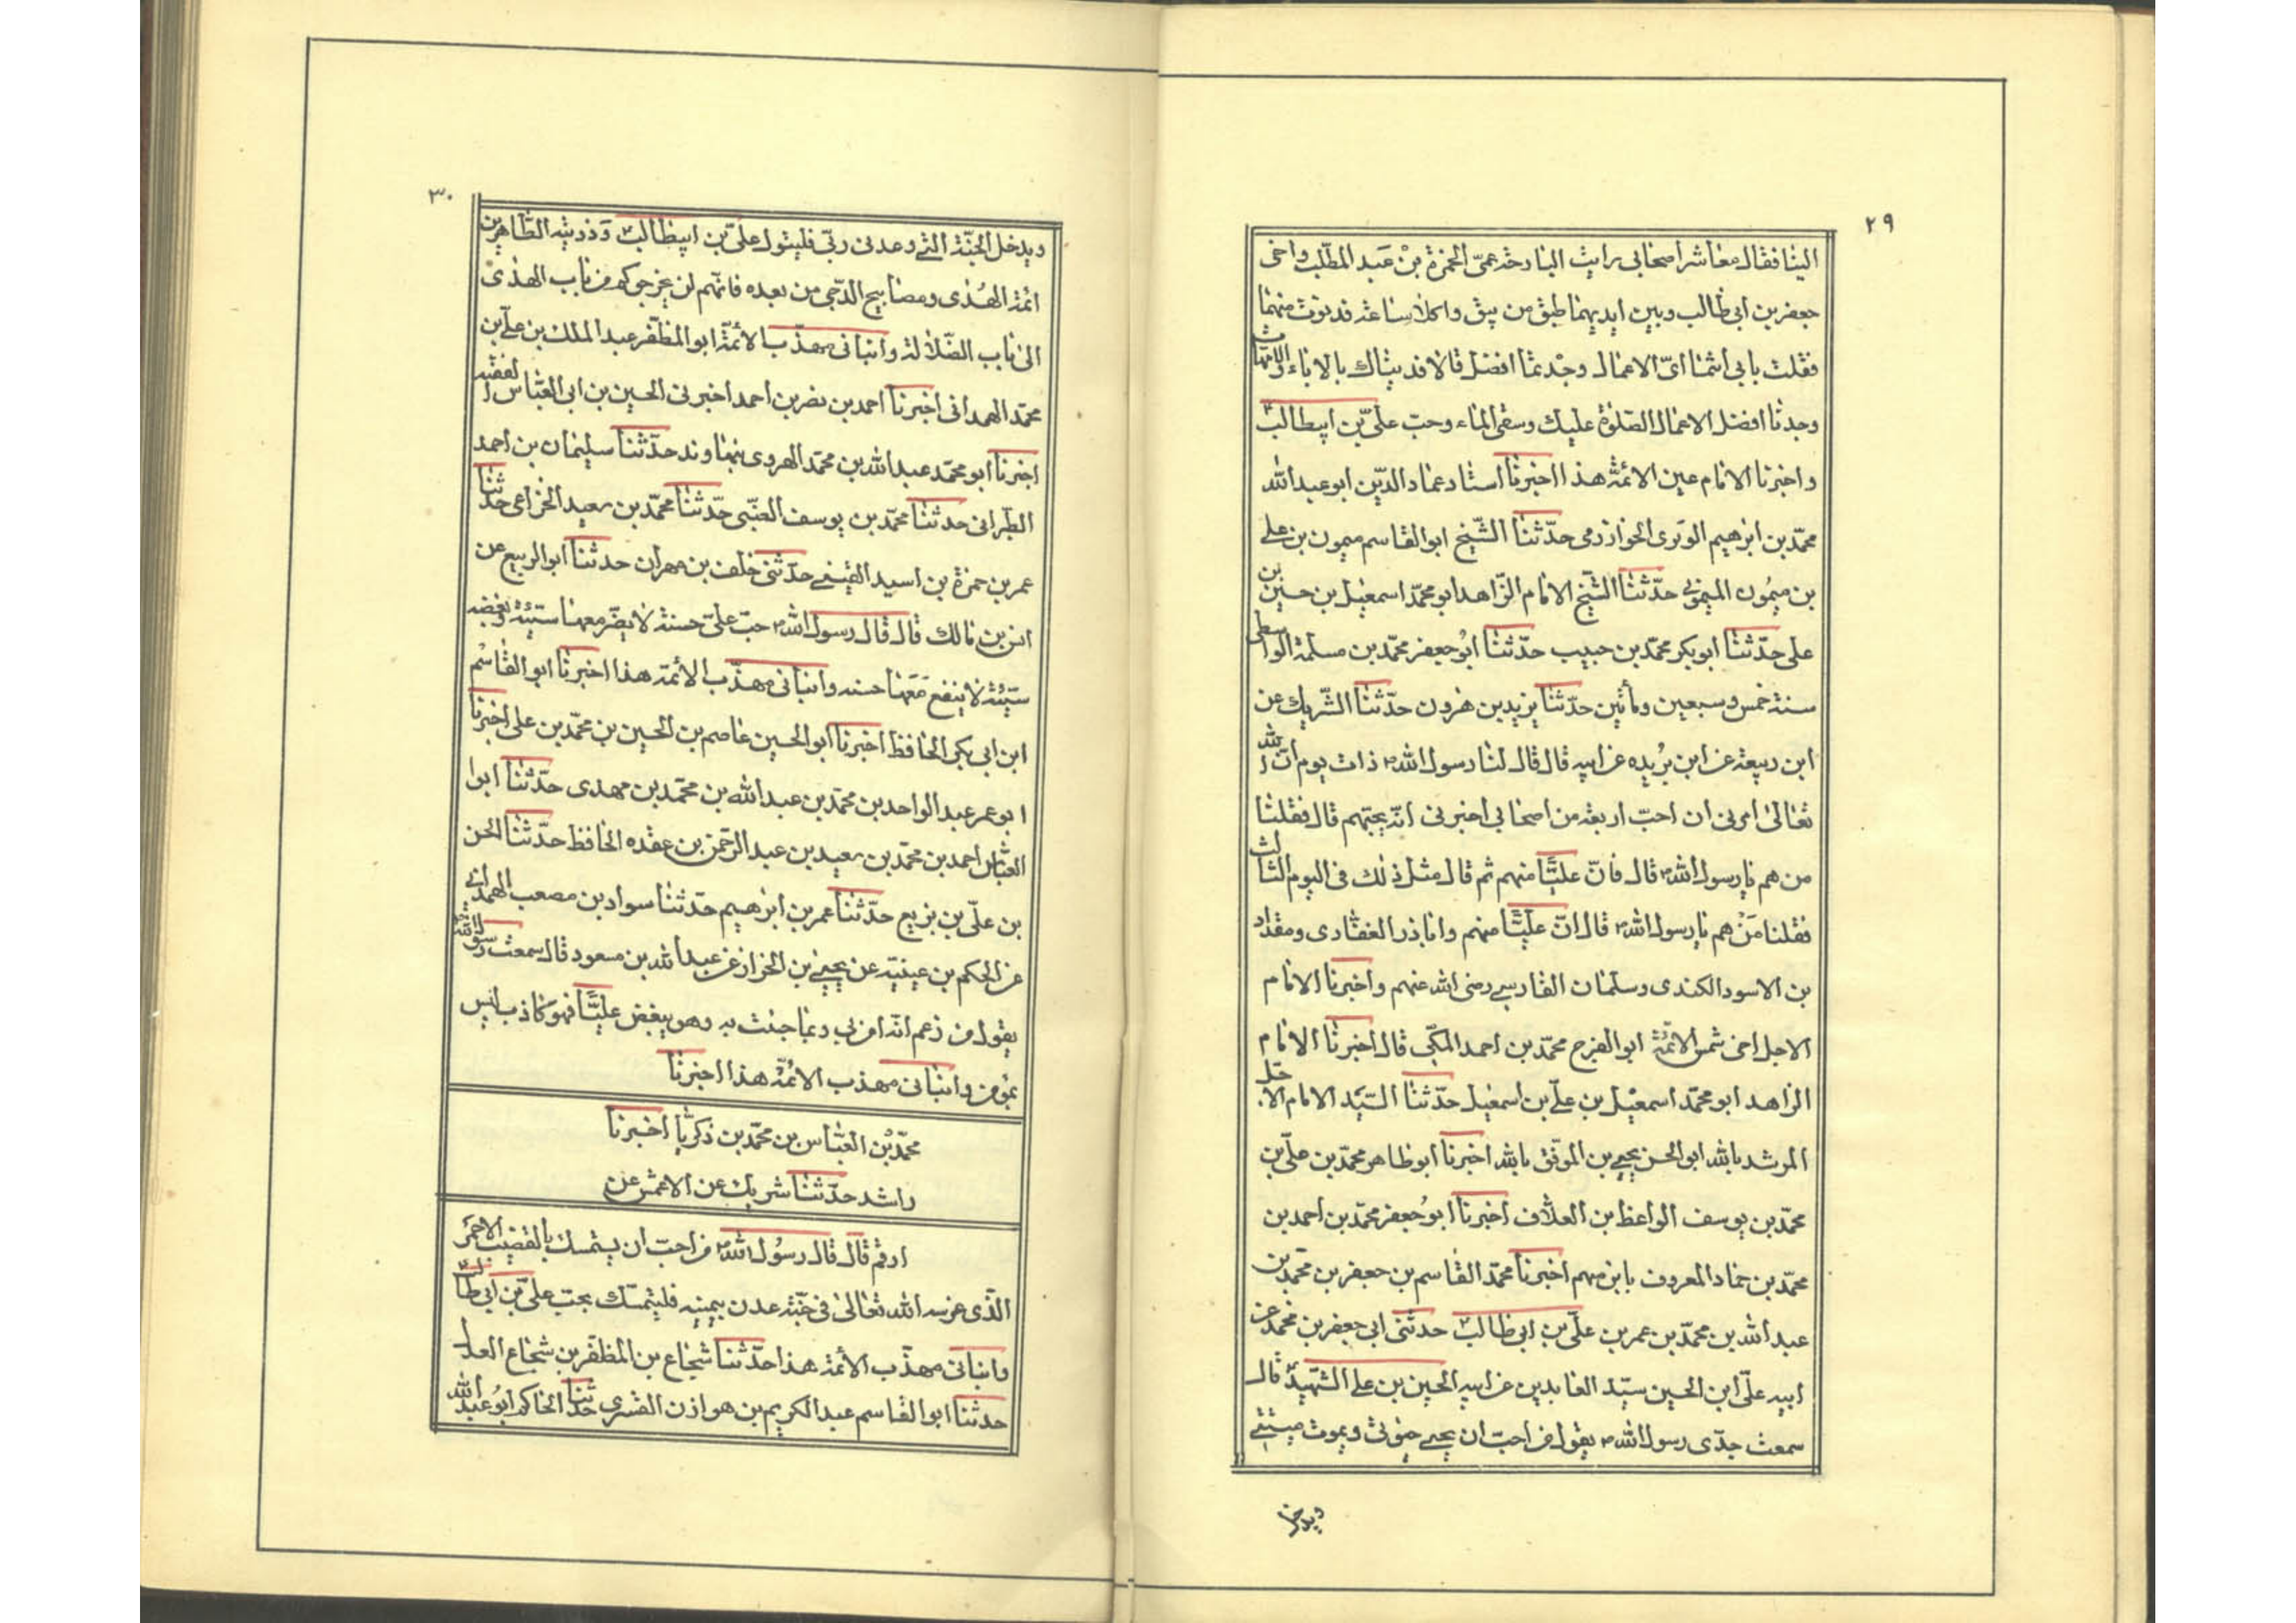 ٢٩
الينا فقال معاشر اصحابى رايت البارحة عمى الحمزة بن عبد المطلب واخى
جعفر بن ابى طالب وبين ايديهما طبق من نبق واكلا ساعة فدنوت منهما
فقلت بابى انتما اىّ الاعمال وجدتما افضل قالا فديناك بالاباء والامهات
وجدنا افضل الاعمال الصلوة عليك وسقى الماء وحب علىّ بن ابيطالب
واخبرنا الامام عين الائمة هذا اخبرنا استاد عماد الدين ابو عبد الله
محمّد بن ابرهيم الوبرى الخوارزمى حدّثنا الشّيخ ابو القاسم ميمون بن على
بن ميمون الميمونى حدّثنا الشّيخ الامام الزّاهد ابو محمّد اسمعيل بن حسين بن
على حدّثنا ابو بكر محمّد بن حبيب حدّثنا ابو جعفر محمّد بن مسلمة الواسطى
سنة خمس وسبعين ومأتين حدّثنا يزيد بن هرون حدّثنا الشّريك عن
ابن ربيعة عن ابن بُريده عن ابيه قال قال لنا رسول الله ذات يوم انّ الله
تعالىٰ امرنى ان احبّ اربعة من اصحابى اخبرنى انّه يحبّهم قال فقلنا
من هم يا رسول الله قال فانّ عليّا منهم ثم قال مثل ذلك فى اليوم الثالث
فقلنا مَنْ هم يا رسول الله قال انّ عليّا منهم وابا ذر الغفارى ومقداد
بن الاسود الكندى وسلمان الفارسى رضى الله عنهم واخبرنا الامام
الاجل اخى شمس الائمّة ابو الفرج محمّد بن احمد المكّى قال اخبرنا الامام
الزاهد ابو محمّد اسمعيل بن علىّ بن اسمعيل حدّثنا السّيّد الامام الاجلّ
المرشد بالله ابو الحسن يحيى بن الموفق بالله اخبرنا ابو طاهر محمّد بن علىّ بن
محمّد بن يوسف الواعظ بن العلّاف اخبرنا ابو جعفر محمّد بن احمد بن
محمّد بن حماد المعروف بابن ميثم اخبرنا محمّد القاسم بن جعفر بن محمّد بن
عبد الله بن محمّد بن عمر بن علىّ بن ابى طالب حدثنى ابى جعفر بن محمّد عن
ابيه علىّ ابن الحسين سيّد العابدين عن ابيه الحسين بن على الشّهيد قال
سمعت جدّى رسول الله يقول من احبّ ان يحيى حيوتى ويموت ميتتى
ويدخل
٣٠
ويدخل الجنّة الّتى وعدنى ربّى فليتول علىّ بن ابيطالب وذريته الطّاهرين
ائمة الهدى ومصابيح الدّجى من بعده فانهم لن يخرجوكم من باب الهدىٰ
الىٰ باب الضّلالة وانبانى مهذّب الائمّة ابو المظفّر عبد الملك بن علىّ بن
محمّد الهمدانى اخبرنا احمد بن نصر بن احمد اخبرنى الحسين بن ابى العبّاس الفقيه
اخبرنا ابو محمّد عبد الله بن محمّد الهروى بنهاوند حدّثنا سليمان بن احمد
الطّبرانى حدثنا محمّد بن يوسف الضّبّى حدّثنا محمّد بن سعيد الخزاعى حدّثنا
عمر بن حمزة بن اسيد القيسى حدّثنى خلف بن مهران حدثنا ابو الربيع عن
انس بن مالك قال قال رسول الله حبّ علىّ حسنة لا يضّر معها سيّئة وبغضه
سيّئة لا ينفع مَعَها حسنة وانبانى مهذّب الائمّة هذا اخبرنا ابو القاسم
ابن ابى بكر الحافظ اخبرنا ابو الحسين عاصم بن الحسين بن محمّد بن على اخبرنا
ابو عمر عبد الواحد بن محمّد بن عبد الله بن محمّد بن مهدى حدّثنا ابوا
العبّاس احمد بن محمّد بن سعيد بن عبد الرّحمن بن عقده الحافظ حدّثنا الحسن
بن علىّ بن بزيع حدّثنا عمر بن ابرهيم حدّثنا سواد بن مصعب الهمدانى
عن الحكم بن عيينه عن يحيى بن الخراز عن عبد الله بن مسعود قال سمعت رسول الله
يقول من زعم انّه امن بى وبما جئت به وهو يبغض عليّا فهو كاذب ليس
بمؤمن وانبانى مهذب الائمّة هذا اخبرنا
محمّد بن العبّاس بن محمّد بن زكريّا اخبرنا
راشد حدّثنا شريك عن الاعمش عن
ارقم قال قال رسول الله من احبّ ان يستمسك بالقضيب الاحمر
الّذى غرسه الله تعالىٰ فى جنّة عدن بيمينه فليتمسّك بحبّ علىّ بن ابى طالب
وانبانى مهذّب الائمة هذا حدّثنا شجاع بن المظفّر بن شجاع العدل
حدثنا ابو القاسم عبد الكريم بن هوازن القشرى حدّثنا الحاكم ابو عبد الله